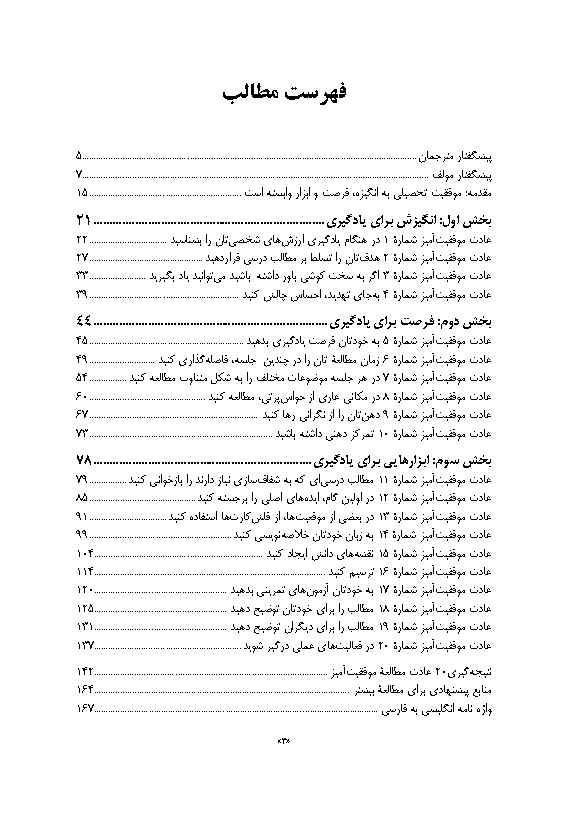 فهرست مطالب
پیشگفتار مترجمان ۵
پیشگفتار مولف ۷
مقدمه؛ موفقیت تحصیلی به انگیزه، فرصت و ابزار وابسته است ۱۵
بخش اول: انگیزش برای یادگیری ۲۱
عادت موفقیت‌آمیز شمارهٔ ۱ در هنگام یادگیری ارزش‌های شخصی‌تان را بشناسید ۲۲
عادت موفقیت‌آمیز شمارهٔ ۲ هدف‌تان را تسلط بر مطالب درسی قراردهید ۲۷
عادت موفقیت‌آمیز شمارهٔ ۳ اگر به سخت کوشی باور داشته باشید می‌توانید یاد بگیرید ۳۳
عادت موفقیت‌آمیز شمارهٔ ۴ به‌جای تهدید، احساس چالش کنید ۳۹
بخش دوم: فرصت برای یادگیری ۴۴
عادت موفقیت‌آمیز شمارهٔ ۵ به خودتان فرصت یادگیری بدهید ۴۵
عادت موفقیت‌آمیز شمارهٔ ۶ زمان مطالعهٔ تان را در چندین جلسه، فاصله‌گذاری کنید ۴۹
عادت موفقیت‌آمیز شمارهٔ ۷ در هر جلسه موضوعات مختلف را به شکل متناوب مطالعه کنید ۵۴
عادت موفقیت‌آمیز شمارهٔ ۸ در مکانی عاری از حواس‌پرتی، مطالعه کنید ۶۰
عادت موفقیت‌آمیز شمارهٔ ۹ ذهن‌تان را از نگرانی رها کنید ۶۷
عادت موفقیت‌آمیز شمارهٔ ۱۰ تمرکز ذهنی داشته باشید ۷۳
بخش سوم: ابزارهایی برای یادگیری ۷۸
عادت موفقیت‌آمیز شمارهٔ ۱۱ مطالب درسی‌ای که به شفاف‌سازی نیاز دارند را بازخوانی کنید ۷۹
عادت موفقیت‌آمیز شمارهٔ ۱۲ در اولین گام، ایده‌های اصلی را برجسته کنید ۸۵
عادت موفقیت‌آمیز شمارهٔ ۱۳ در بعضی از موقعیت‌ها، از فلش‌کارت‌ها استفاده کنید ۹۱
عادت موفقیت‌آمیز شمارهٔ ۱۴ به زبان خودتان خلاصه‌نویسی کنید ۹۹
عادت موفقیت‌آمیز شمارهٔ ۱۵ نقشه‌های دانش ایجاد کنید ۱۰۴
عادت موفقیت‌آمیز شمارهٔ ۱۶ ترسیم کنید ۱۱۴
عادت موفقیت‌آمیز شمارهٔ ۱۷ به خودتان آزمون‌های تمرینی بدهید ۱۲۰
عادت موفقیت‌آمیز شمارهٔ ۱۸ مطالب را برای خودتان توضیح دهید ۱۲۵
عادت موفقیت‌آمیز شمارهٔ ۱۹ مطالب را برای دیگران توضیح دهید ۱۳۱
عادت موفقیت‌آمیز شمارهٔ ۲۰ در فعالیت‌های عملی درگیر شوید ۱۳۷
نتیجه‌گیری ۲۰ عادت مطالعهٔ موفقیت‌آمیز ۱۴۲
منابع پیشنهادی برای مطالعهٔ بیشتر ۱۶۴
واژه نامه انگلیسی به فارسی ۱۶۷
«۳»